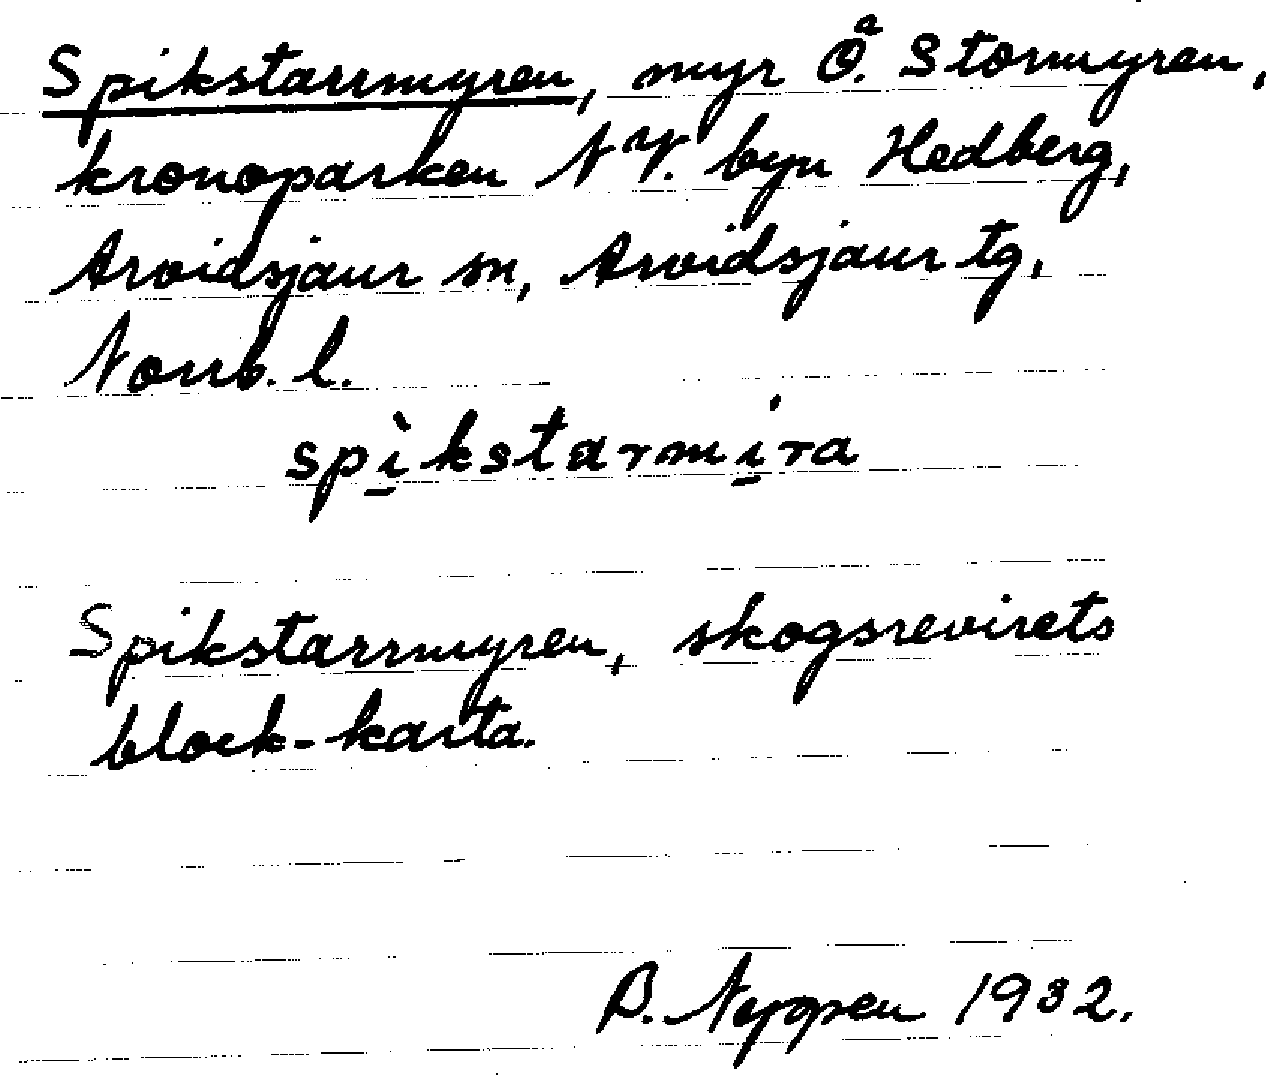 Spikstarrmyren, myr Ö. Stormyren,
kronoparken NV. byn Hedberg,
Arvidsjaur sn, Arvidsjaur tg,
Norrb. l.
spìkstarmíra
Spikstarrmyren, skogsrevirets
block-karta.
B. Neppen 1932.